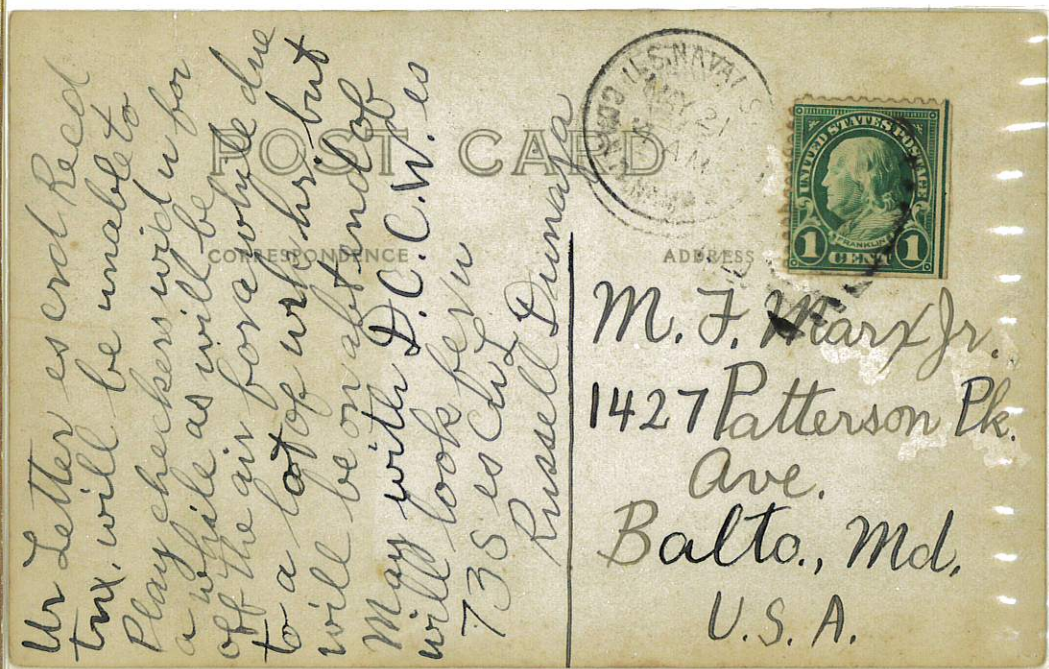 POST CARD
CORRESPONDENCE
ADDRESS
U.S. NAVAL S
MAY 21
AM
UNITED STATES POSTAGE
FRANKLIN
1 CENT 1
Ur Letter es crd Recd
tnx. will be unable to
Play checkers wid u for
a while as will be
off the air for awhile due
to a lot of wrk hr. but
will be on abt end of
May with D.C.C.W. es
will look fer u
73S es CUL
Russell Dunaja
M. F. Marx Jr.
1427 Patterson Pk.
Ave.
Balto., Md.
U.S.A.